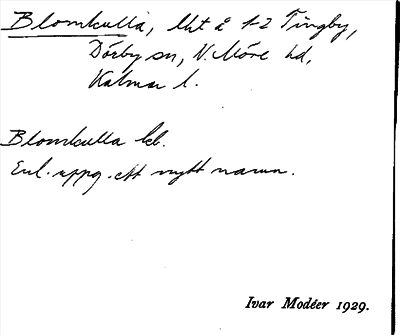 Blomkulla, lht å 1-2 Tingby,
Dörby sn, N. Möre hd,
Kalmar l.
Blomkulla kl.
Enl. uppg. ett nytt namn.
Ivar Modéer 1929.